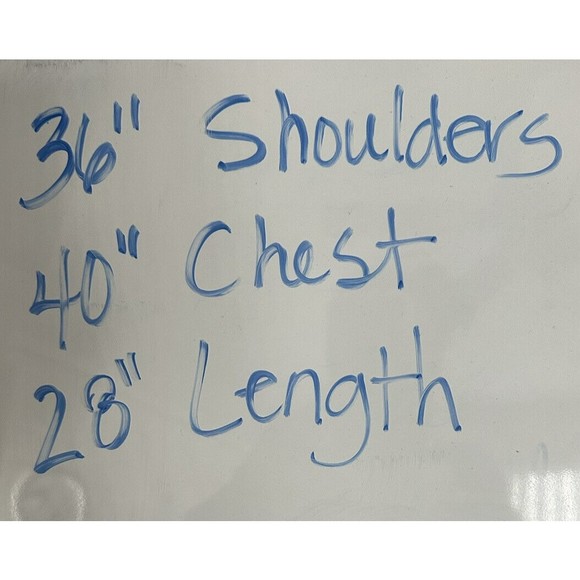 36" Shoulders
40" Chest
28" Length